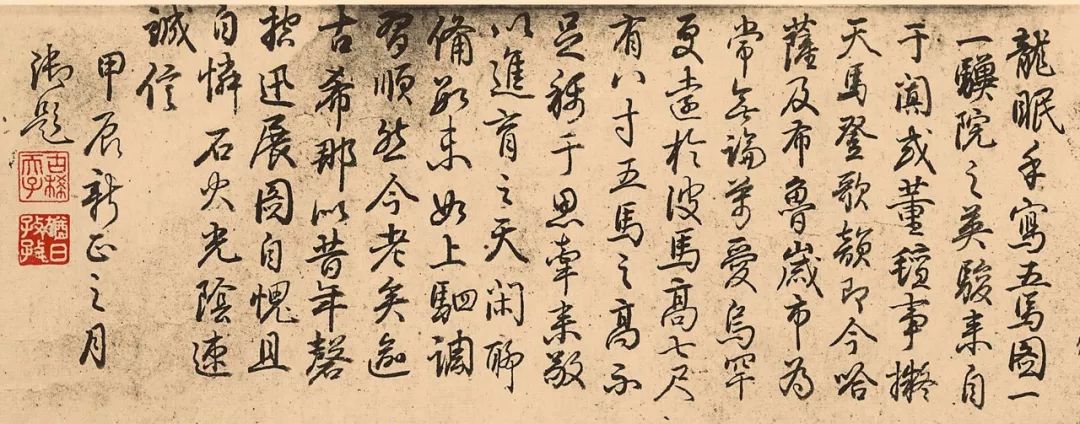 龍眠手寫五馬圖一
一驥院之英駿來自
于闐或董氊事擬
天馬登歌韻即今哈
薩及布魯歲市為
常無論芻愛烏罕
更遠於彼馬高七尺
有八寸五馬之高不
足稱于思牽來敬
以進育之天閑聊
備数未如上駟調
習順然今老矣逾
古希那以昔年磬
控迅展圖自愧且
自憐石火光陰速
誠信
甲辰新正之月
御題
古稀天子
猶日孜孜